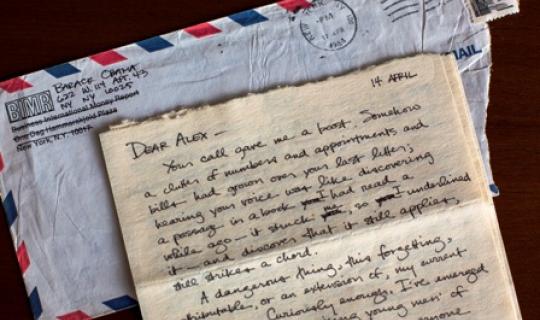 BIMR
BARACK OBAMA
622 W. 114 APT. 43
NY NY 10025
Business International Money Report
One Dag Hammarskjold Plaza
New York, N.Y. 10017
AIL
14 APRIL
DEAR ALEX —
Your call gave me a boost. Somehow
a clutter of numbers and appointments and
bills had grown over your last letter;
hearing your voice was like discovering
a passage in a book you I had read a
while ago — it struck me, so you I underlined
it — and discover that it still applies,
still strikes a chord.
A dangerous thing, this forgetting,
attributable, or an extension of, my current
Curiously enough, I've emerged
young men' of